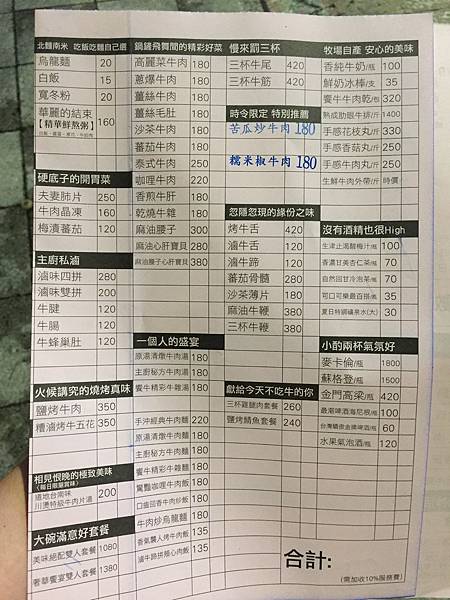 北麵南米 吃飯吃麵自己選
烏龍麵 20
白飯 15
寬冬粉 20
華麗的結束
【精華鮮熬粥】 160
硬底子的開胃菜
夫妻肺片 250
牛肉晶凍 160
梅漬蕃茄 120
主廚私滷
滷味四拼 280
滷味雙拼 200
牛腱 120
牛腸 120
牛蜂巢肚 120
火候講究的燒烤真味
鹽烤牛肉 350
糟滷烤牛五花 350
相見恨晚的極致美味
(每日限量賞味)
道地台南味
川燙特級牛肉片湯 200
大碗滿意好套餐
美味絕配雙人套餐 1080
奢華饗宴雙人套餐 1380
鍋鏟飛舞間的精彩好菜
高麗菜牛肉 180
蔥爆牛肉 180
薑絲牛肉 180
薑絲毛肚 180
沙茶牛肉 180
蕃茄牛肉 180
泰式牛肉 250
咖哩牛肉 220
香煎牛肝 180
乾燒牛雜 180
麻油腰子 300
麻油心肝寶貝 280
麻油腰子心肝寶貝 380
一個人的盛宴
原湯清燉牛肉湯 180
主廚秘方牛肉湯 180
饗牛精彩牛雜湯 180
手沖經典牛肉麵 220
原湯清燉牛肉麵 180
主廚秘方牛肉麵 180
饗牛精彩牛雜麵 180
驚豔咖哩牛肉飯 180
口齒回香牛肉炒飯 180
牛肉炒烏龍麵 180
香氣襲人烤牛肉飯 135
滷牛蹄拼隨心肉飯 135
慢來罰三杯
三杯牛尾 420
三杯牛筋 420
時令限定 特別推薦
苦瓜炒牛肉 180
糯米椒牛肉 180
忽隱忽現的緣份之味
烤牛舌 420
滷牛舌 120
滷牛蹄 120
蕃茄骨髓 280
沙茶薄片 180
麻油牛鞭 380
三杯牛鞭 380
獻給今天不吃牛的你
三杯雞腿肉套餐 260
鹽烤鯖魚套餐 240
牧場自產 安心的美味
香純牛奶/瓶 100
鮮奶冰棒/支 35
饗牛牛肉乾/包 320
熟成肋眼牛排/斤 1400
手感花枝丸/斤 330
手感香菇丸/斤 250
手感牛肉丸/斤 250
生鮮牛肉外帶/斤 時價
沒有酒精也很High
生津止渴酸梅汁/瓶 100
香濃甘美杏仁茶/瓶 70
自然回甘冷泡茶/瓶 70
可口可樂最百搭/瓶 35
夏日特調礦泉水(大) 30
小酌兩杯氣氛好
麥卡倫/瓶 1800
蘇格登/瓶 1500
金門高粱/瓶 420
最潮啤酒海尼根/瓶 100
台灣驕傲金牌啤酒/瓶 60
水果氣泡酒/瓶 120
合計:
(需加收10%服務費)